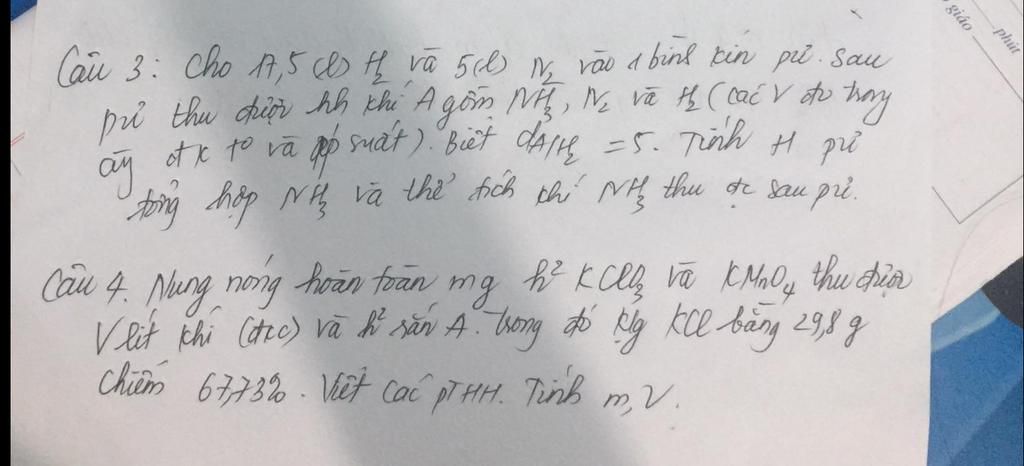 giáo
phút
Câu 3: Cho 17,5 (l) H₂ và 5(l) N₂ vào 1 bình kín pứ. Sau
pứ thu được hh khí A gồm NH₃, N₂ và H₂ (các V đo trong
cùng đk t° và áp suất). Biết dA/H₂ = 5. Tính H pứ
tổng hợp NH₃ và thể tích khí NH₃ thu đc sau pứ.
Câu 4. Nung nóng hoàn toàn mg h² KClO₃ và KMnO₄ thu được
V lít khí (đktc) và h² rắn A. trong đó klg KCl bằng 29,8 g
chiếm 67,73%. Viết các PTHH. Tính m, V.